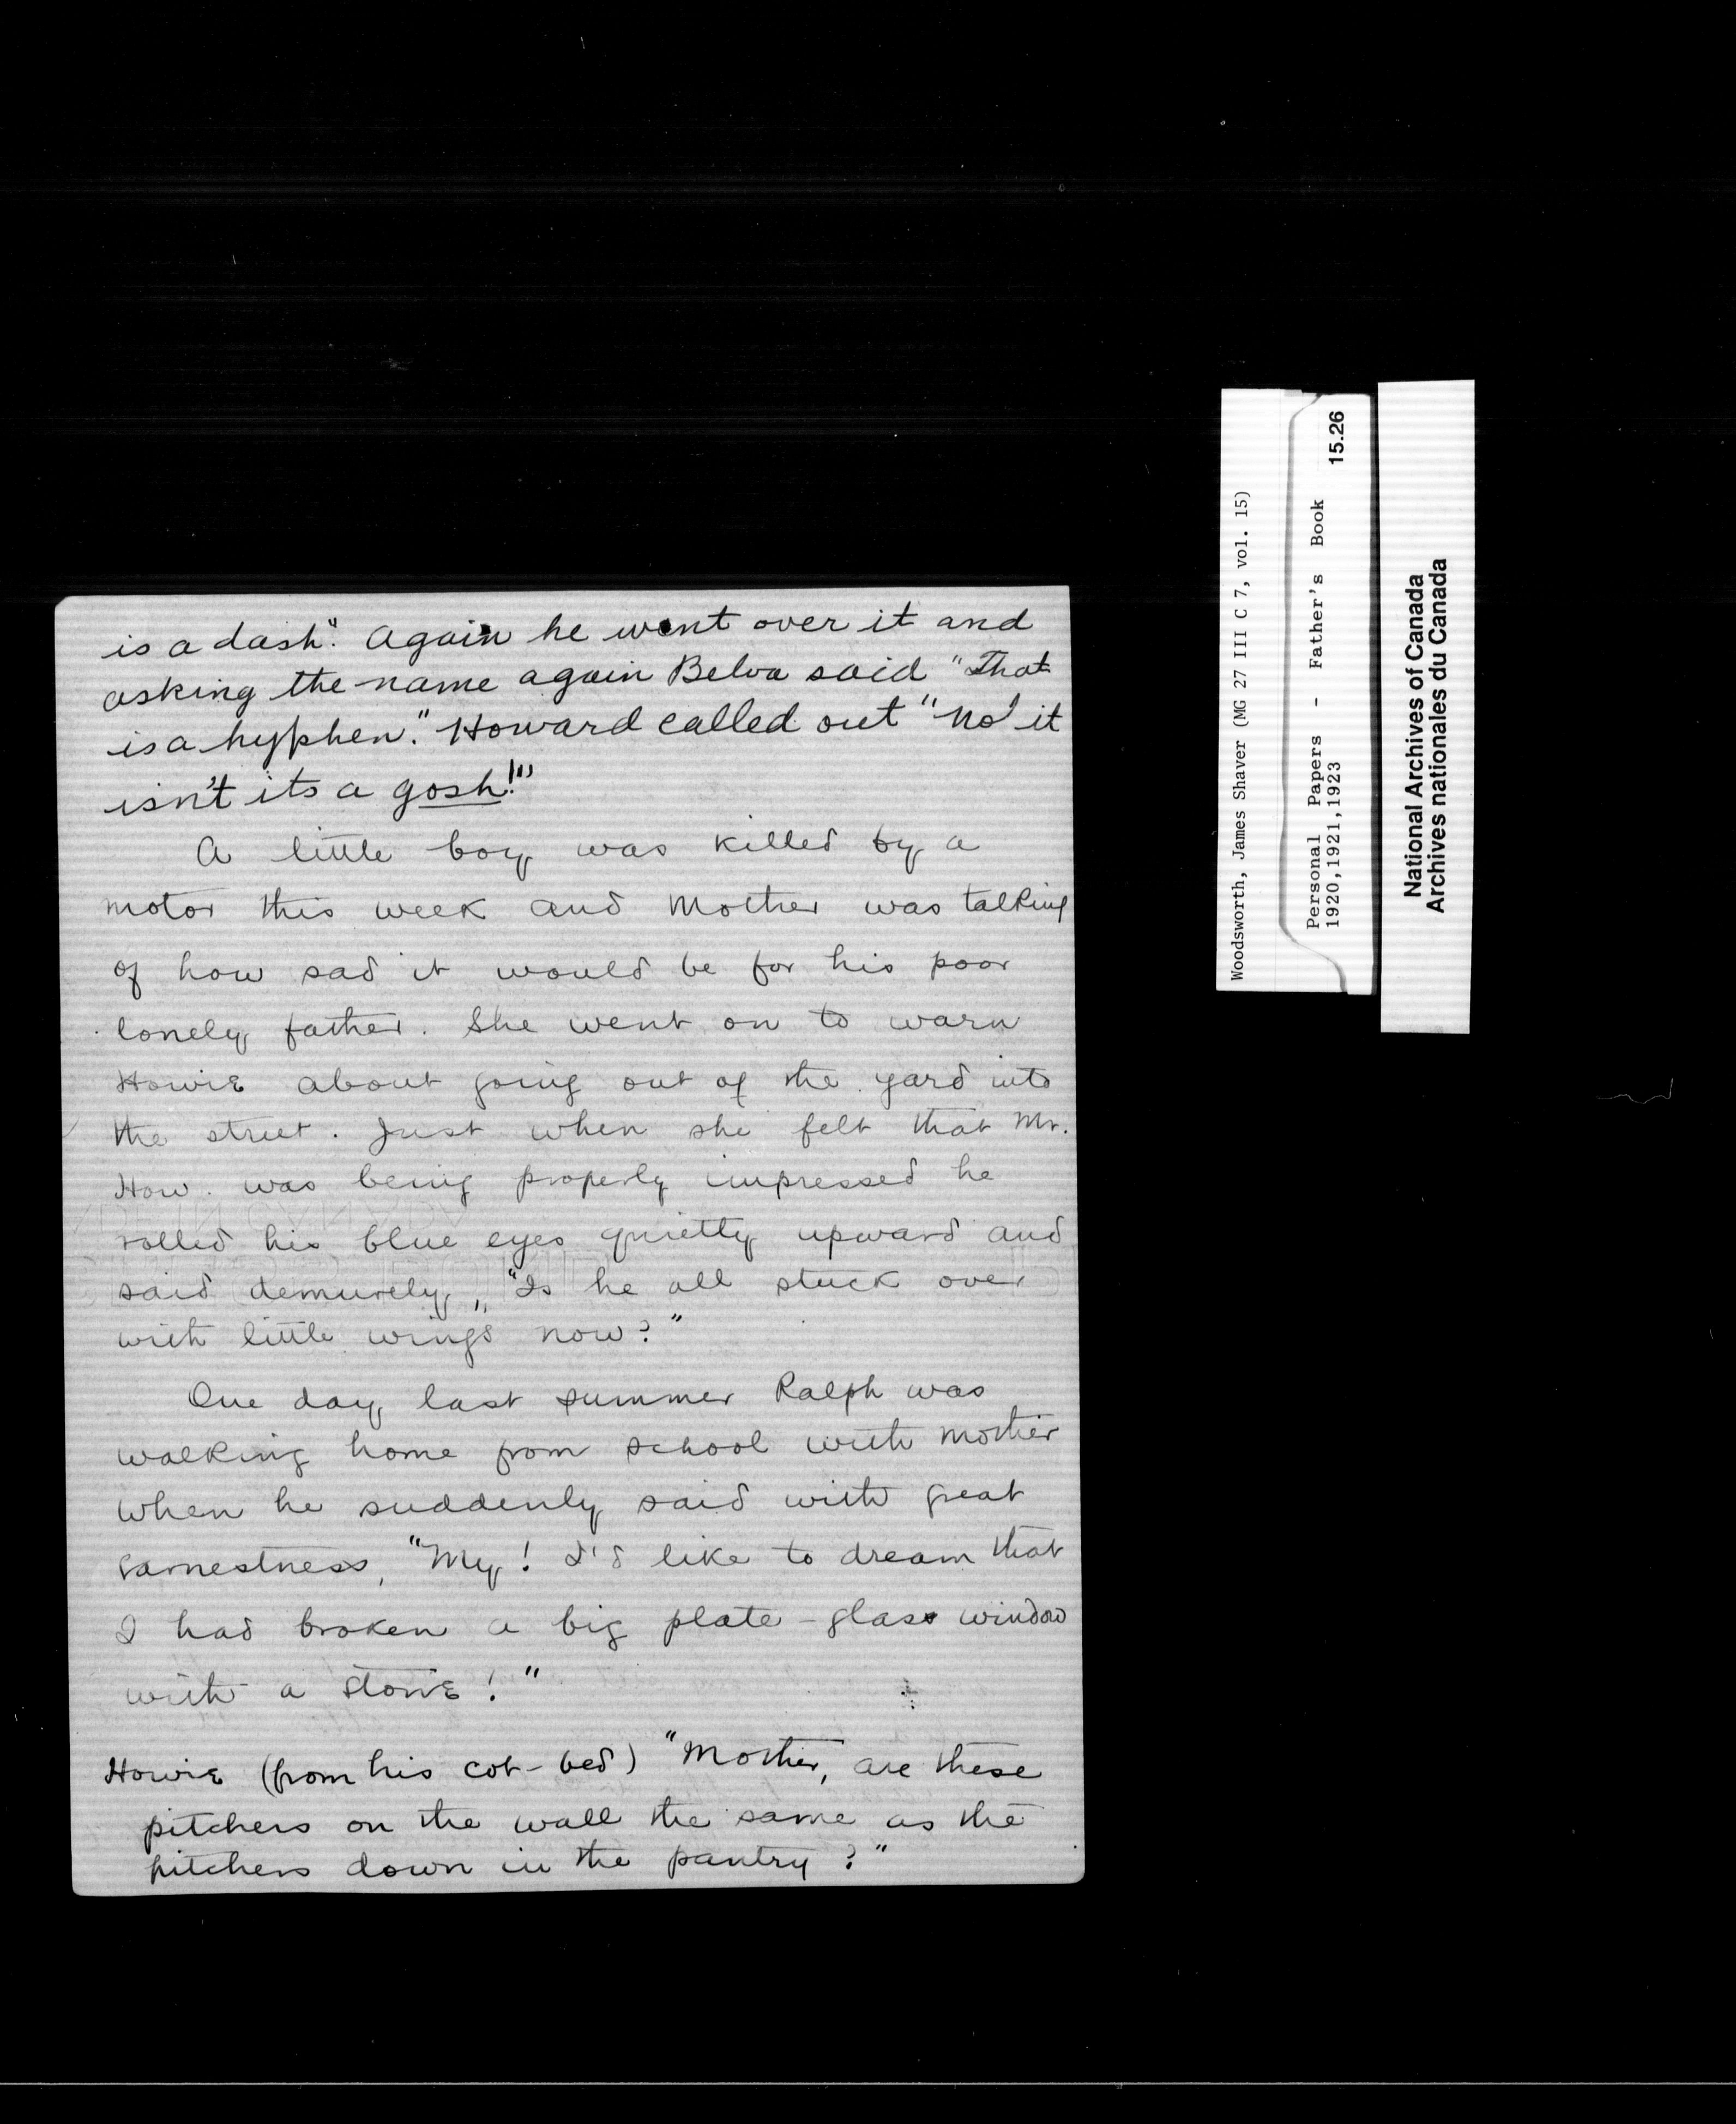 is a dash". Again he went over it and
asking the name again Belva said "That
is a hyphen." Howard called out "No it
isn't its a gosh!"
A little boy was killed by a
motor this week and Mother was talking
of how sad it would be for his poor
lonely father. She went on to warn
Howie about going out of the yard into
the street. Just when she felt that Mr.
How. was being properly impressed he
rolled his blue eyes quietly upward and
said demurely, "Is he all stuck over
with little wings now?"
One day last summer Ralph was
walking home from school with mother
when he suddenly said with great
earnestness, "My! I'd like to dream that
I had broken a big plate-glass window
with a stone!"
Howie (from his cot-bed) "Mother, are these
pitchers on the wall the same as the
pitchers down in the pantry?"
Woodsworth, James Shaver (MG 27 III C 7, vol. 15)
Personal Papers - Father's Book 15.26
1920,1921,1923
National Archives of Canada
Archives nationales du Canada